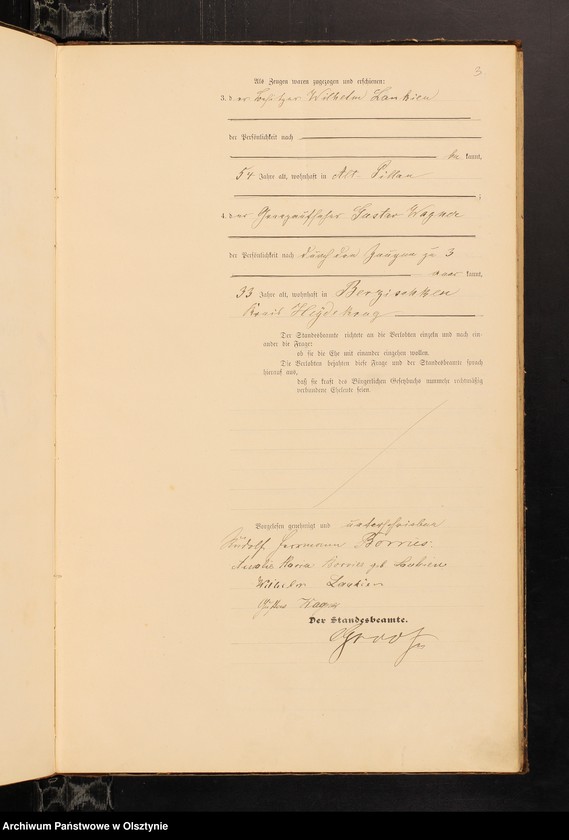 3
Als Zeugen waren zugezogen und erschienen:
3. der Besitzer Wilhelm Lankien
der Persönlichkeit nach
be kannt,
54 Jahre alt, wohnhaft in Alt-Pillau
;
4. der Grenzaufseher Gustav Wagner
der Persönlichkeit nach durch den Zeugen zu 3
aner kannt,
33 Jahre alt, wohnhaft in Berzischken
Kreis Heydekrug
Der Standesbeamte richtete an die Verlobten einzeln und nach ein-
ander die Frage:
ob sie die Ehe mit einander eingehen wollen.
Die Verlobten bejahten diese Frage und der Standesbeamte sprach
hierauf aus,
daß sie kraft des Bürgerlichen Gesetzbuchs nunmehr rechtmäßig
verbundene Eheleute seien.
Vorgelesen, genehmigt und unterschrieben
Rudolf Herrmann Borries.
Maria Borries geb.
Wilhelm Lankien
Gustav Wagner
Der Standesbeamte.
Archiwum Państwowe w Olsztynie